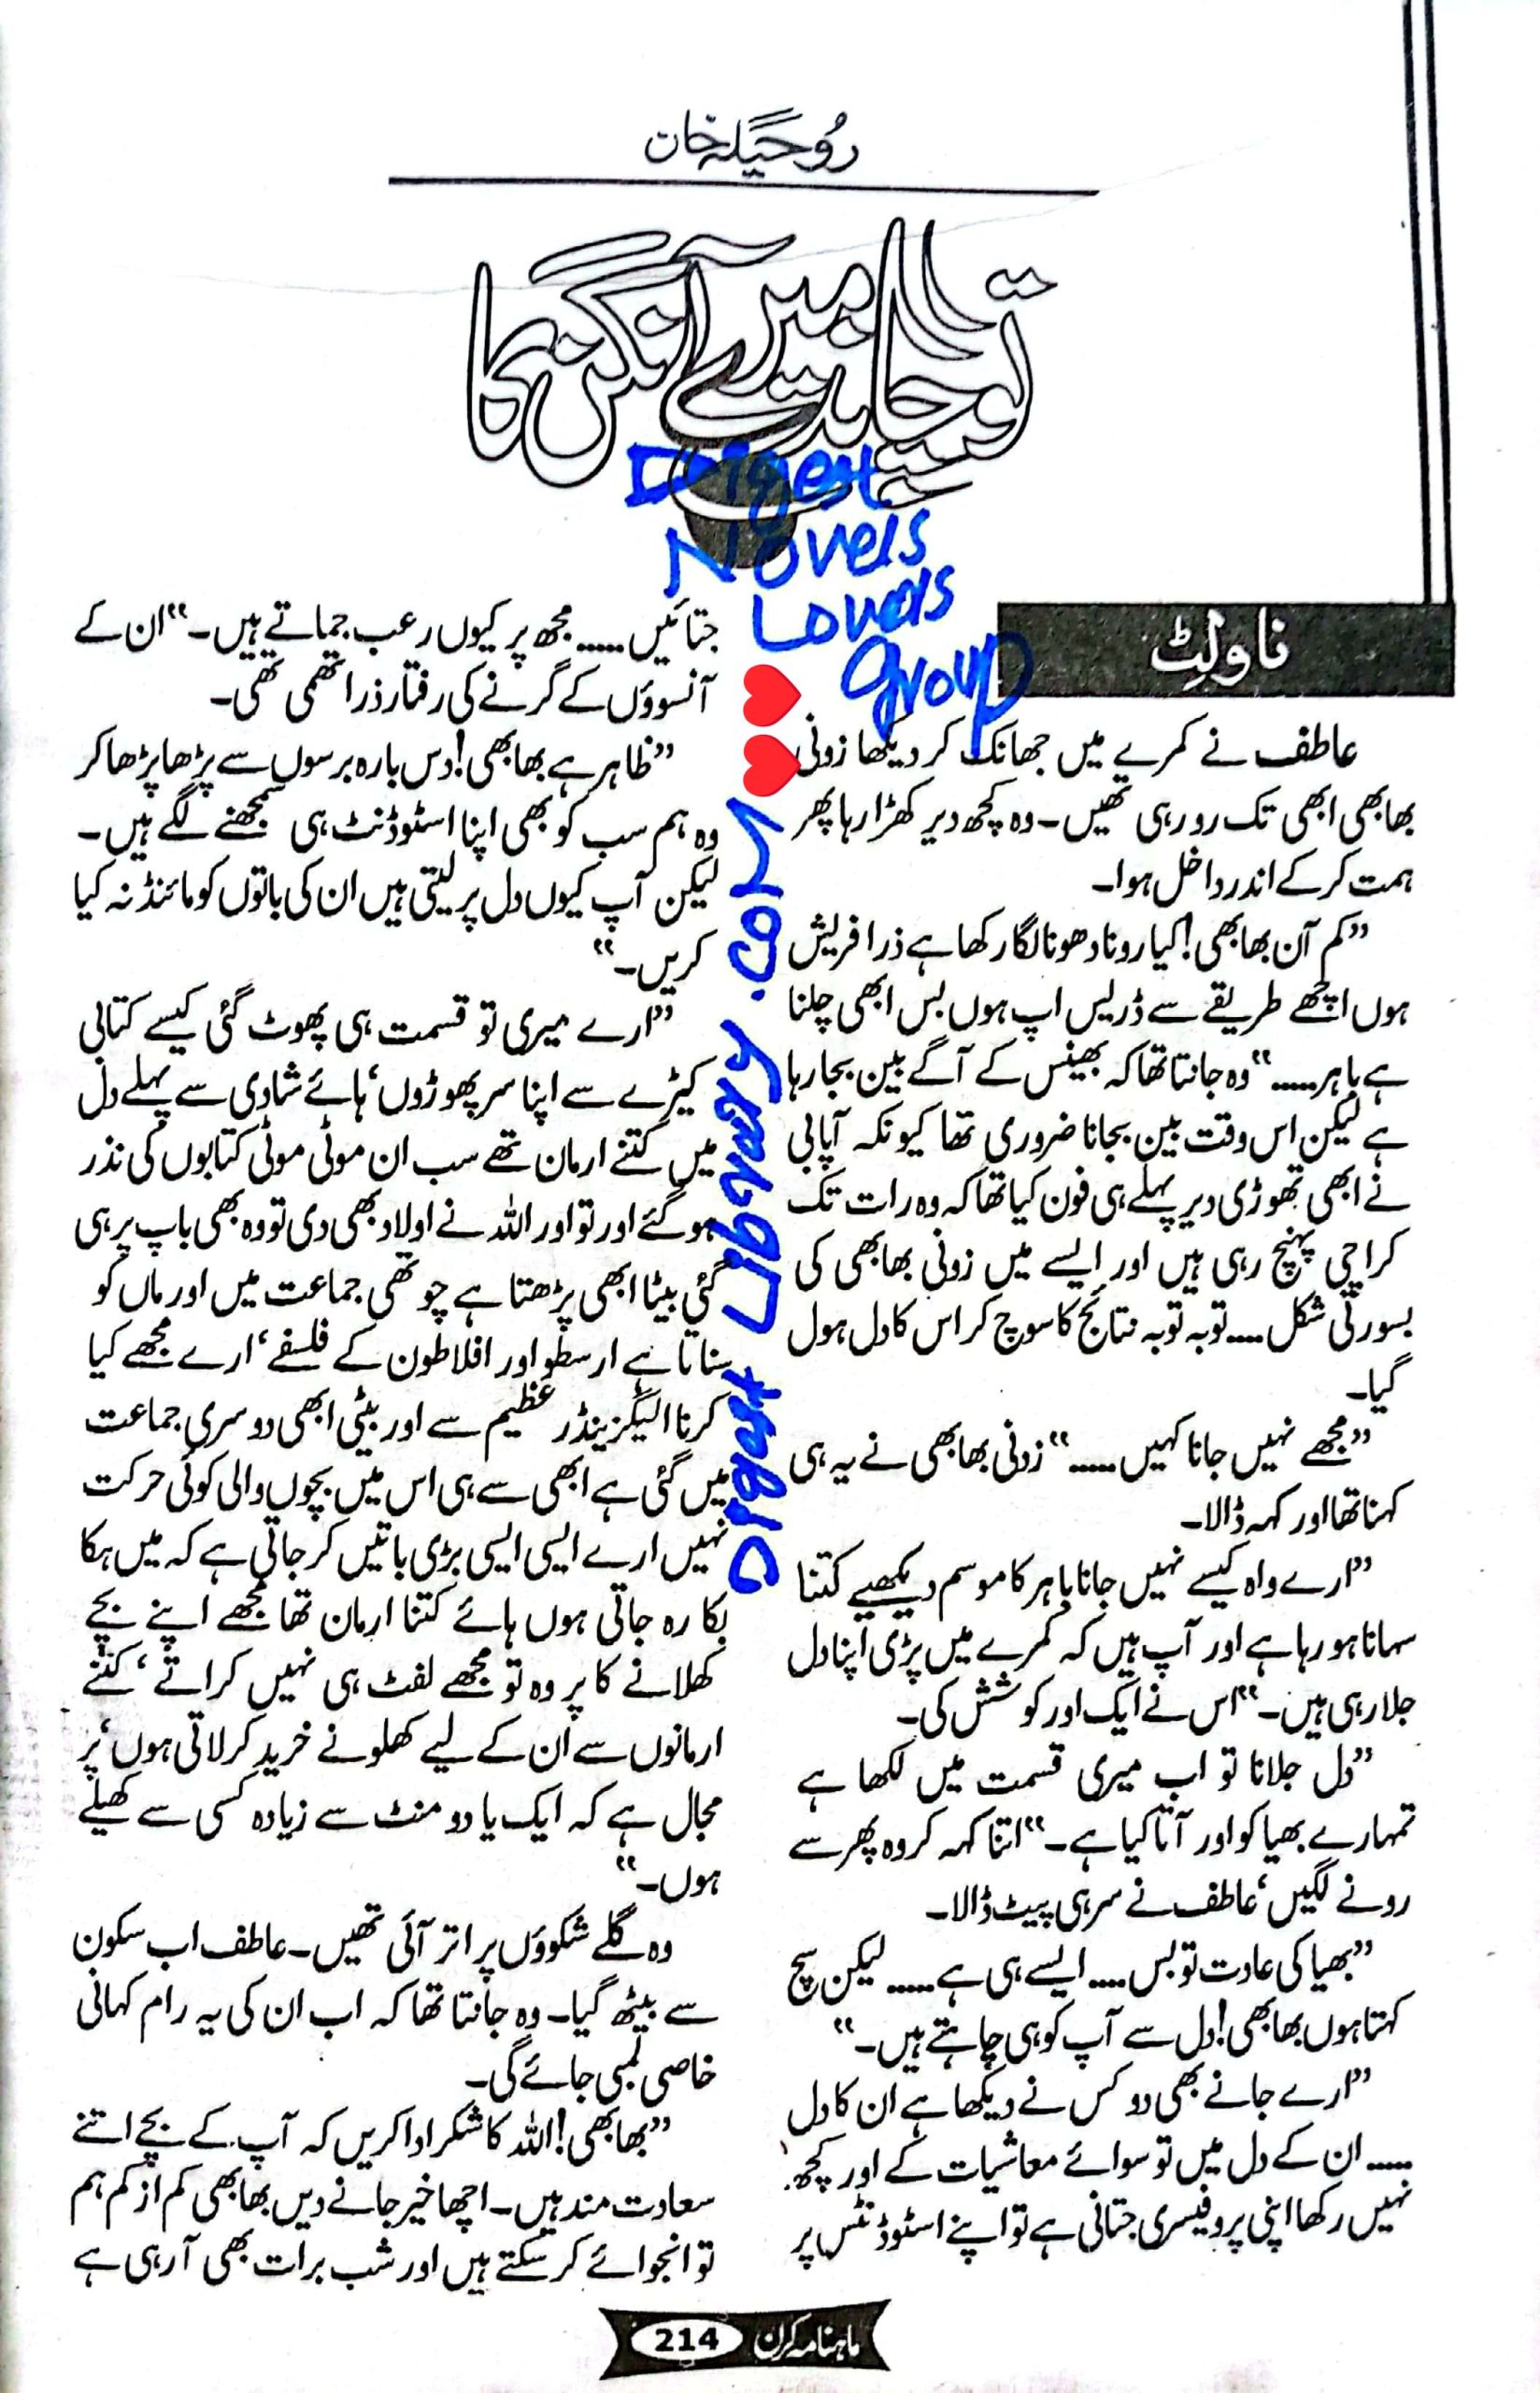 روحیلہ خان
تو چاند میرے آنگن کا
Digest
Novels
Lovers
group
ناولٹ
عاطف نے کمرے میں جھانک کر دیکھا زونی
بھابھی ابھی تک رو رہی تھیں۔ وہ کچھ دیر کھڑا رہا پھر
ہمت کر کے اندر داخل ہوا۔
”کم آن بھابھی! کیا رونا دھونا لگا رکھا ہے ذرا فریش
ہوں اچھے طریقے سے ڈریس اپ ہوں بس ابھی چلنا
ہے باہر.....“ وہ جانتا تھا کہ بھینس کے آگے بین بجا رہا
ہے لیکن اس وقت بین بجانا ضروری تھا کیونکہ آپابی
نے ابھی تھوڑی دیر پہلے ہی فون کیا تھا کہ وہ رات تک
کراچی پہنچ رہی ہیں اور ایسے میں زونی بھابھی کی
بسورتی شکل.... توبہ توبہ نتائج کا سوچ کر اس کا دل ہول
گیا۔
”مجھے نہیں جانا کہیں.....“ زونی بھابھی نے یہ ہی
کہنا تھا اور کہہ ڈالا۔
”ارے واہ کیسے نہیں جانا باہر کا موسم دیکھیے کتنا
سہانا ہو رہا ہے اور آپ ہیں کہ کمرے میں پڑی اپنا دل
جلا رہی ہیں۔“ اس نے ایک اور کوشش کی۔
”دل جلانا تو اب میری قسمت میں لکھا ہے
تمہارے بھیا کو اور آتا کیا ہے۔“ اتنا کہہ کر وہ پھر سے
رونے لگیں‘ عاطف نے سر ہی پیٹ ڈالا۔
”بھیا کی عادت تو بس.... ایسے ہی ہے..... لیکن سچ
کہتا ہوں بھابھی! دل سے آپ کو ہی چاہتے ہیں۔“
”ارے جانے بھی دو کس نے دیکھا ہے ان کا دل
..... ان کے دل میں تو سوائے معاشیات کے اور کچھ
نہیں رکھا اپنی پروفیسری جتانی ہے تو اپنے اسٹوڈنٹس پر
جتائیں..... مجھ پر کیوں رعب جماتے ہیں۔“ ان کے
آنسوؤں کے گرنے کی رفتار ذرا تھمی تھی۔
”ظاہر ہے بھابھی! دس بارہ برسوں سے پڑھا پڑھا کر
وہ ہم سب کو بھی اپنا اسٹوڈنٹ ہی سمجھنے لگے ہیں۔
لیکن آپ کیوں دل پر لیتی ہیں ان کی باتوں کو مائنڈ نہ کیا
کریں۔“
”ارے میری تو قسمت ہی پھوٹ گئی کیسے کتابی
کیڑے سے اپنا سر پھوڑوں‘ ہائے شادی سے پہلے دل
میں کتنے ارمان تھے سب ان موٹی موٹی کتابوں کی نذر
ہو گئے اور تو اور اللہ نے اولاد بھی دی تو وہ بھی باپ پر ہی
گئی بیٹا ابھی پڑھتا ہے چوتھی جماعت میں اور ماں کو
سناتا ہے ارسطو اور افلاطون کے فلسفے‘ ارے مجھے کیا
کرنا الیگزینڈر عظیم سے اور بیٹی ابھی دوسری جماعت
میں گئی ہے ابھی سے ہی اس میں بچوں والی کوئی حرکت
نہیں ارے ایسی ایسی بڑی باتیں کر جاتی ہے کہ میں ہکا
بکا رہ جاتی ہوں ہائے کتنا ارمان تھا مجھے اپنے بچے
کھلانے کا پر وہ تو مجھے لفٹ ہی نہیں کراتے‘ کتنے
ارمانوں سے ان کے لیے کھلونے خرید کر لاتی ہوں‘ پر
مجال ہے کہ ایک یا دو منٹ سے زیادہ کسی سے کھیلے
ہوں۔“
وہ گلے شکوؤں پر اتر آئی تھیں۔ عاطف اب سکون
سے بیٹھ گیا۔ وہ جانتا تھا کہ اب ان کی یہ رام کہانی
خاصی لمبی جائے گی۔
”بھابھی! اللہ کا شکر ادا کریں کہ آپ کے بچے اتنے
سعادت مند ہیں۔ اچھا خیر جانے دیں بھابھی کم از کم ہم
تو انجوائے کر سکتے ہیں اور شب برات بھی آ رہی ہے
Digest Library.com
ماہنامہ کرن 214